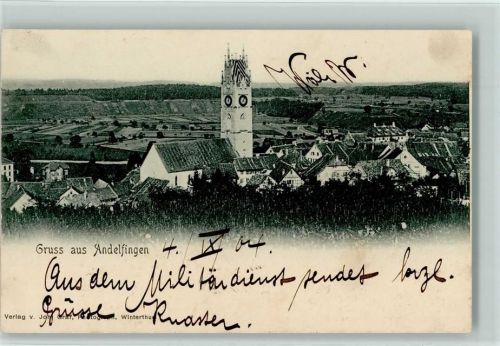 Gruss aus Andelfingen
4./IX 04.
Aus dem Militärdienst sendet herzl.
Grüsse Knaster.
Verlag v. Joh. Graf, Photograph, Winterthur